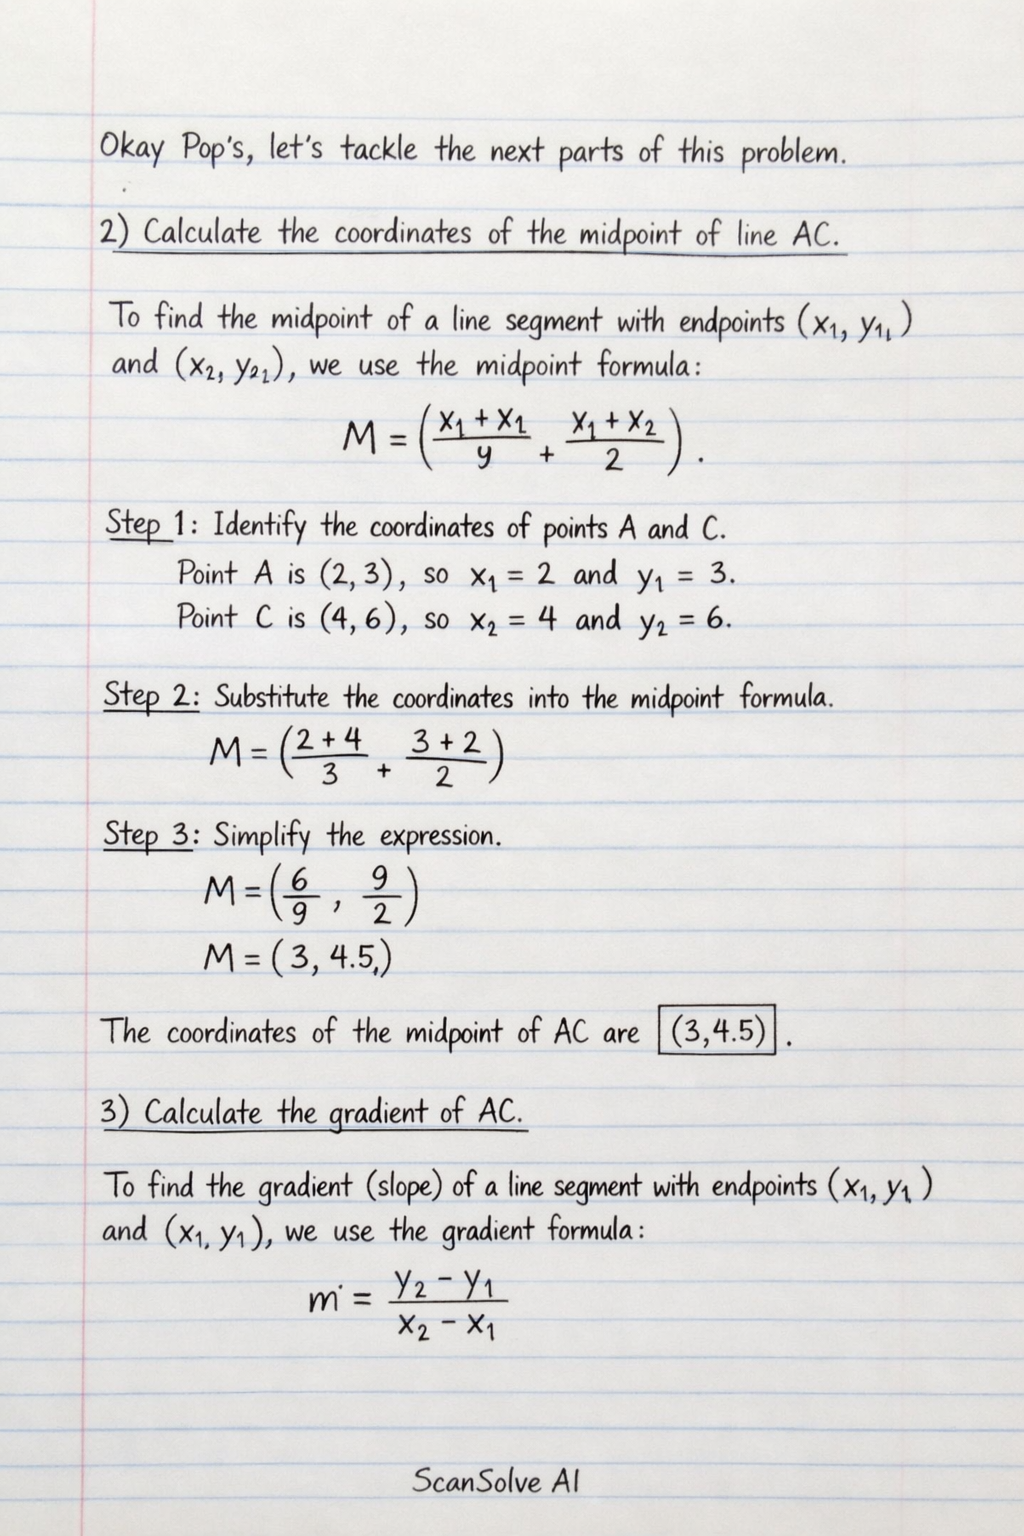 Okay Pop's, let's tackle the next parts of this problem.
2) Calculate the coordinates of the midpoint of line AC.
To find the midpoint of a line segment with endpoints (x₁, y₁₁)
and (x₂, y₂₁), we use the midpoint formula:
M = ( (x₁ + x₁)/y + (x₁ + x₂)/2 ).
Step 1: Identify the coordinates of points A and C.
Point A is (2, 3), so x₁ = 2 and y₁ = 3.
Point C is (4, 6), so x₂ = 4 and y₂ = 6.
Step 2: Substitute the coordinates into the midpoint formula.
M = ( (2 + 4)/3 + (3 + 2)/2 )
Step 3: Simplify the expression.
M = ( 6/9 , 9/2 )
M = ( 3, 4.5,)
The coordinates of the midpoint of AC are (3,4.5).
3) Calculate the gradient of AC.
To find the gradient (slope) of a line segment with endpoints (x₁, y₁)
and (x₁, y₁), we use the gradient formula:
m = (y₂ - y₁)/(x₂ - x₁)
ScanSolve AI